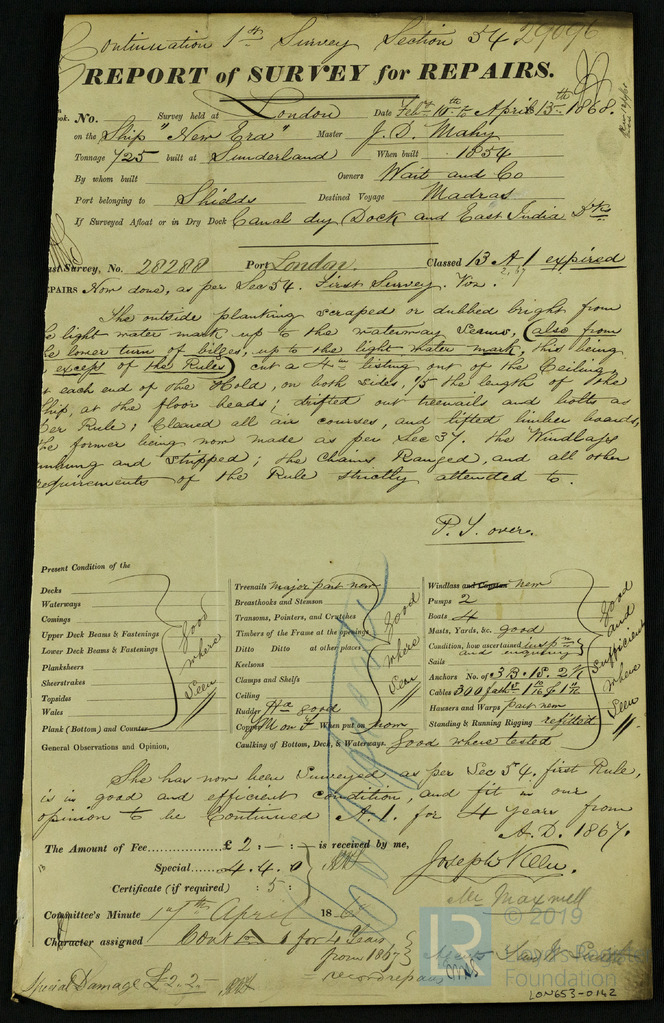 Continuation 1st Survey Section 54 29096
REPORT of SURVEY for REPAIRS.
No. Survey held at London Date Feby 10th to April 13th 1868.
on the Ship "New Era" Master J. D. Mahy
Tonnage 725 built at Sunderland When built 1854
By whom built Owners Wait and Co
Port belonging to Shields Destined Voyage Madras
If Surveyed Afloat or in Dry Dock Canal dry Dock and East India Dks
ast Survey, No. 28288 Port London. Classed 13 A 1 expired
2.67
EPAIRS Now done, as per Sec 54. First Survey. Viz.
The outside planking scraped or dubbed bright from
e light water mark up to the waterway seams, (also from
he lower turn of bilges, up to the light water mark, this being
excess of the Rules) cut a 4in listing out of the Ceiling
t each end of the Hold, on both sides, 1/5 the length of the
hip, at the floor heads; drifted out treenails and bolts as
er Rule; Cleared all air courses, and lifted limber boards,
he former being now made as per Sec 37. the Windlass
unhung and stripped; the Chains Ranged, and all other
requirements of the Rule strictly attended to.
P. T. over.
Present Condition of the
Decks
Waterways
Comings
Upper Deck Beams & Fastenings
Lower Deck Beams & Fastenings
Planksheers
Sheerstrakes
Topsides
Wales
Plank (Bottom) and Counter
good where seen
General Observations and Opinion,
Treenails major part new
Breasthooks and Stemson
Transoms, Pointers, and Crutches
Timbers of the Frame at the openings
Ditto Ditto at other places
Keelsons
Clamps and Shelfs
Ceiling
Rudder good
Copper M on F When put on now
good where seen
Caulking of Bottom, Deck, & Waterways. Good where tested
Windlass and Capstan new
Pumps 2
Boats 4
Masts, Yards, &c. good
Condition, how ascertained inspn and enquiry
Sails
Anchors No. of 3 B. 1 S. 2 K
Cables 300 faths
Hausers and Warps part new
Standing & Running Rigging refitted
Good and sufficient where seen
She has now been Surveyed as per Sec 54. first Rule,
is in good and efficient condition, and fit in our
opinion to be Continued A.1. for 4 years from
A.D. 1867.
The Amount of Fee...... £ 2 . – : is received by me,
Special...... 4 . 4 . 0
Certificate (if required) : 5 :
Mr Maxwell
Committee's Minute 17th April 186
Character assigned Contd A 1 for 4 Years
from 1867
record repairs
Special Damage £2.2
© 2019
LR
Foundation
LON653-0142